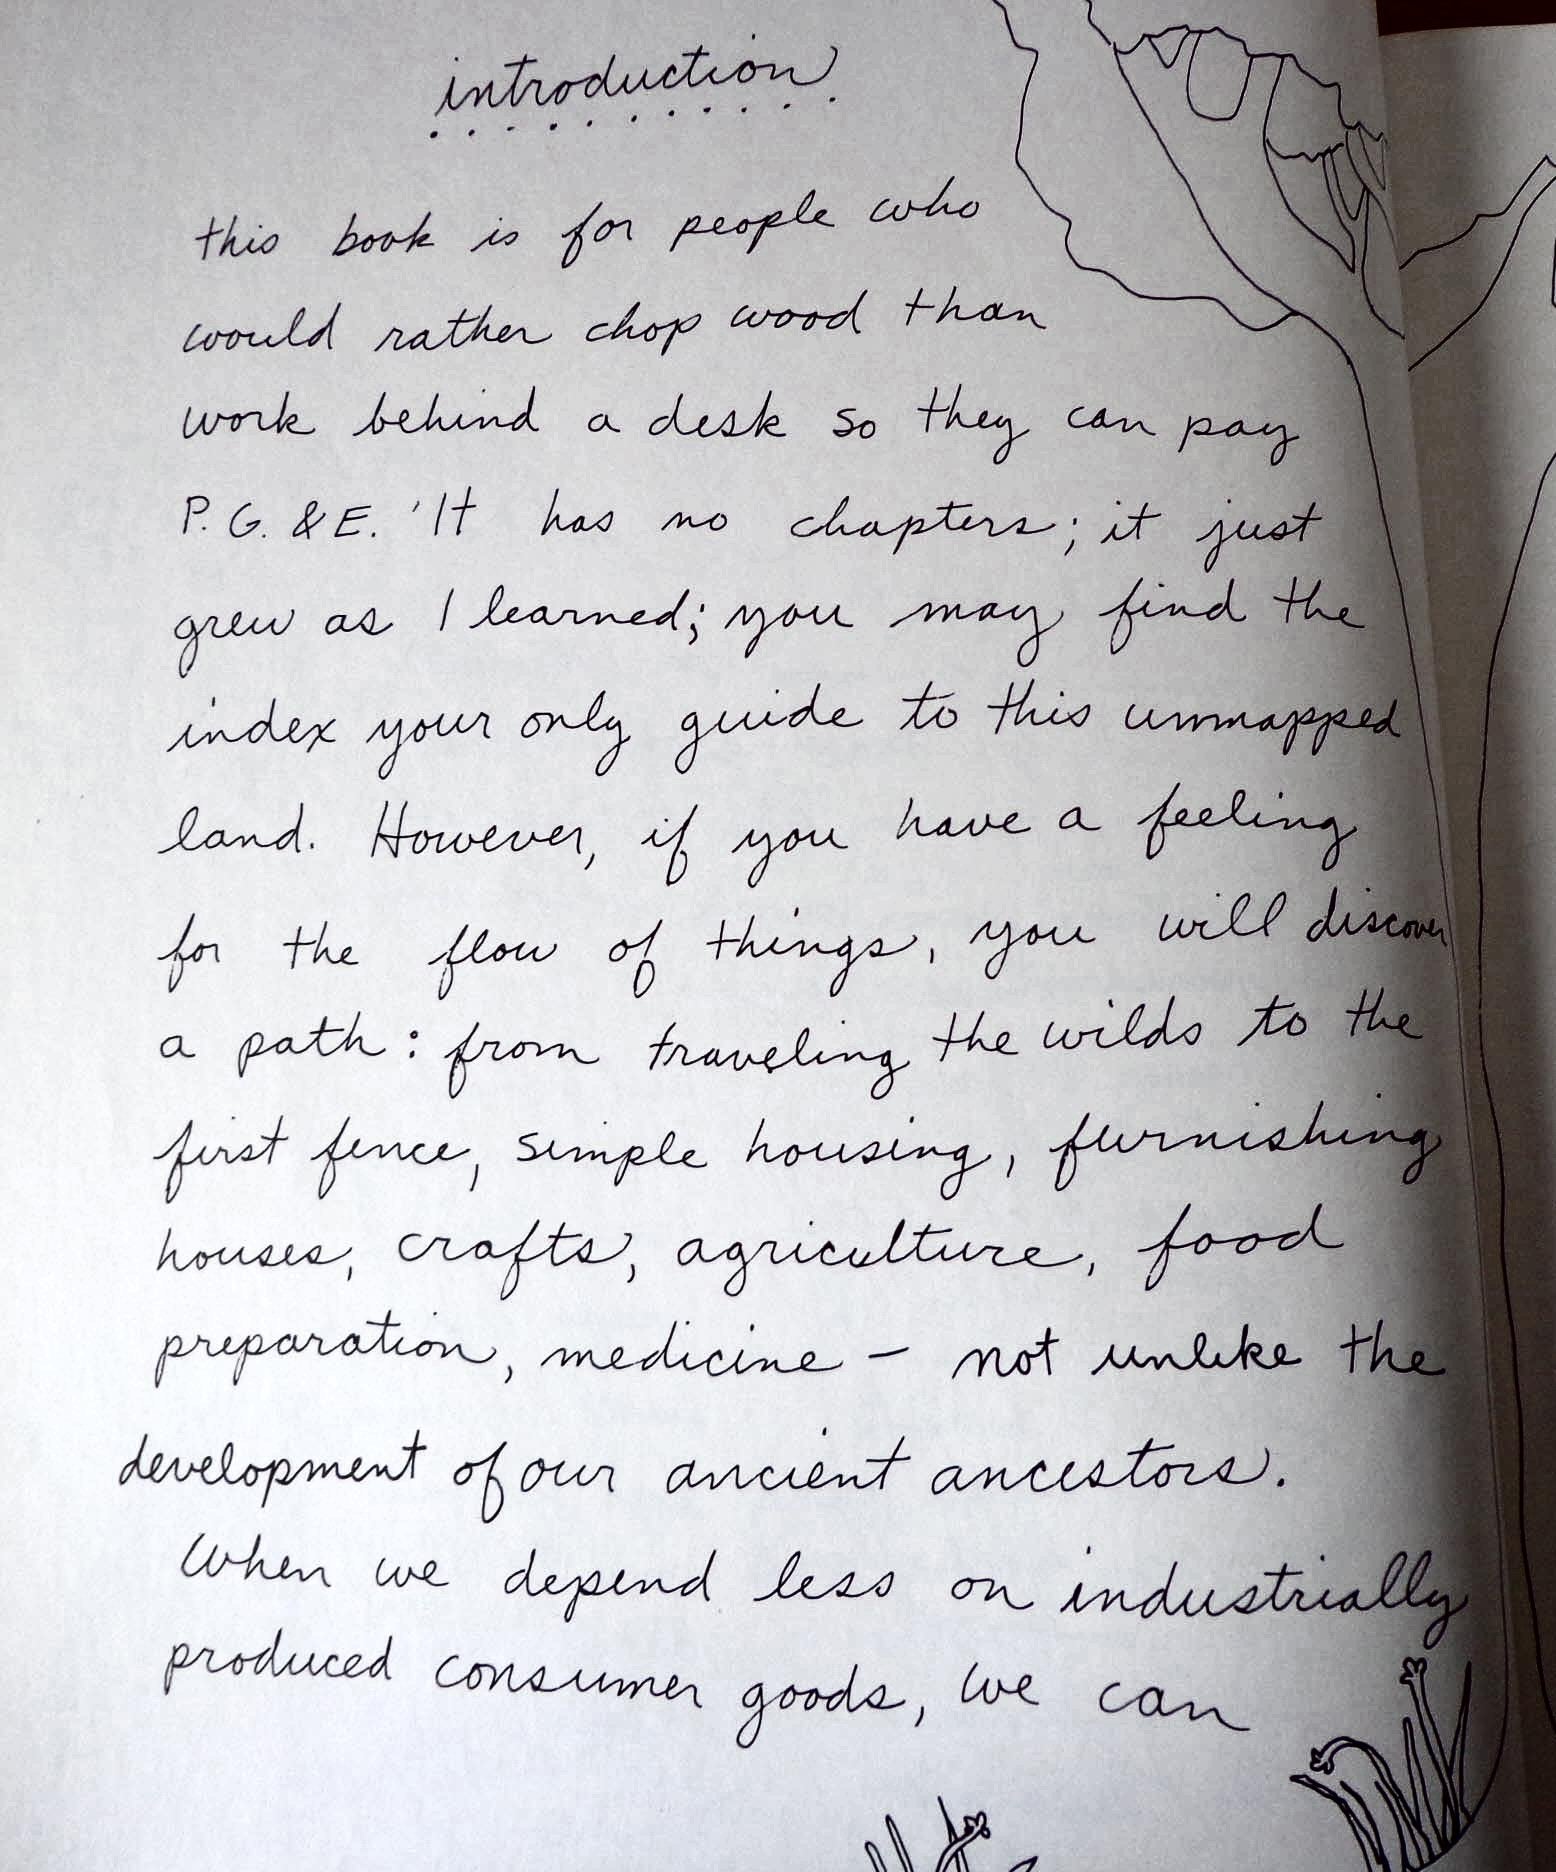 introduction
this book is for people who
would rather chop wood than
work behind a desk so they can pay
P.G. & E. 'It has no chapters; it just
grew as I learned; you may find the
index your only guide to this unmapped
land. However, if you have a feeling
for the flow of things, you will discover
a path: from traveling the wilds to the
first fence, simple housing, furnishing
houses, crafts, agriculture, food
preparation, medicine — not unlike the
development of our ancient ancestors.
When we depend less on industrially
produced consumer goods, we can